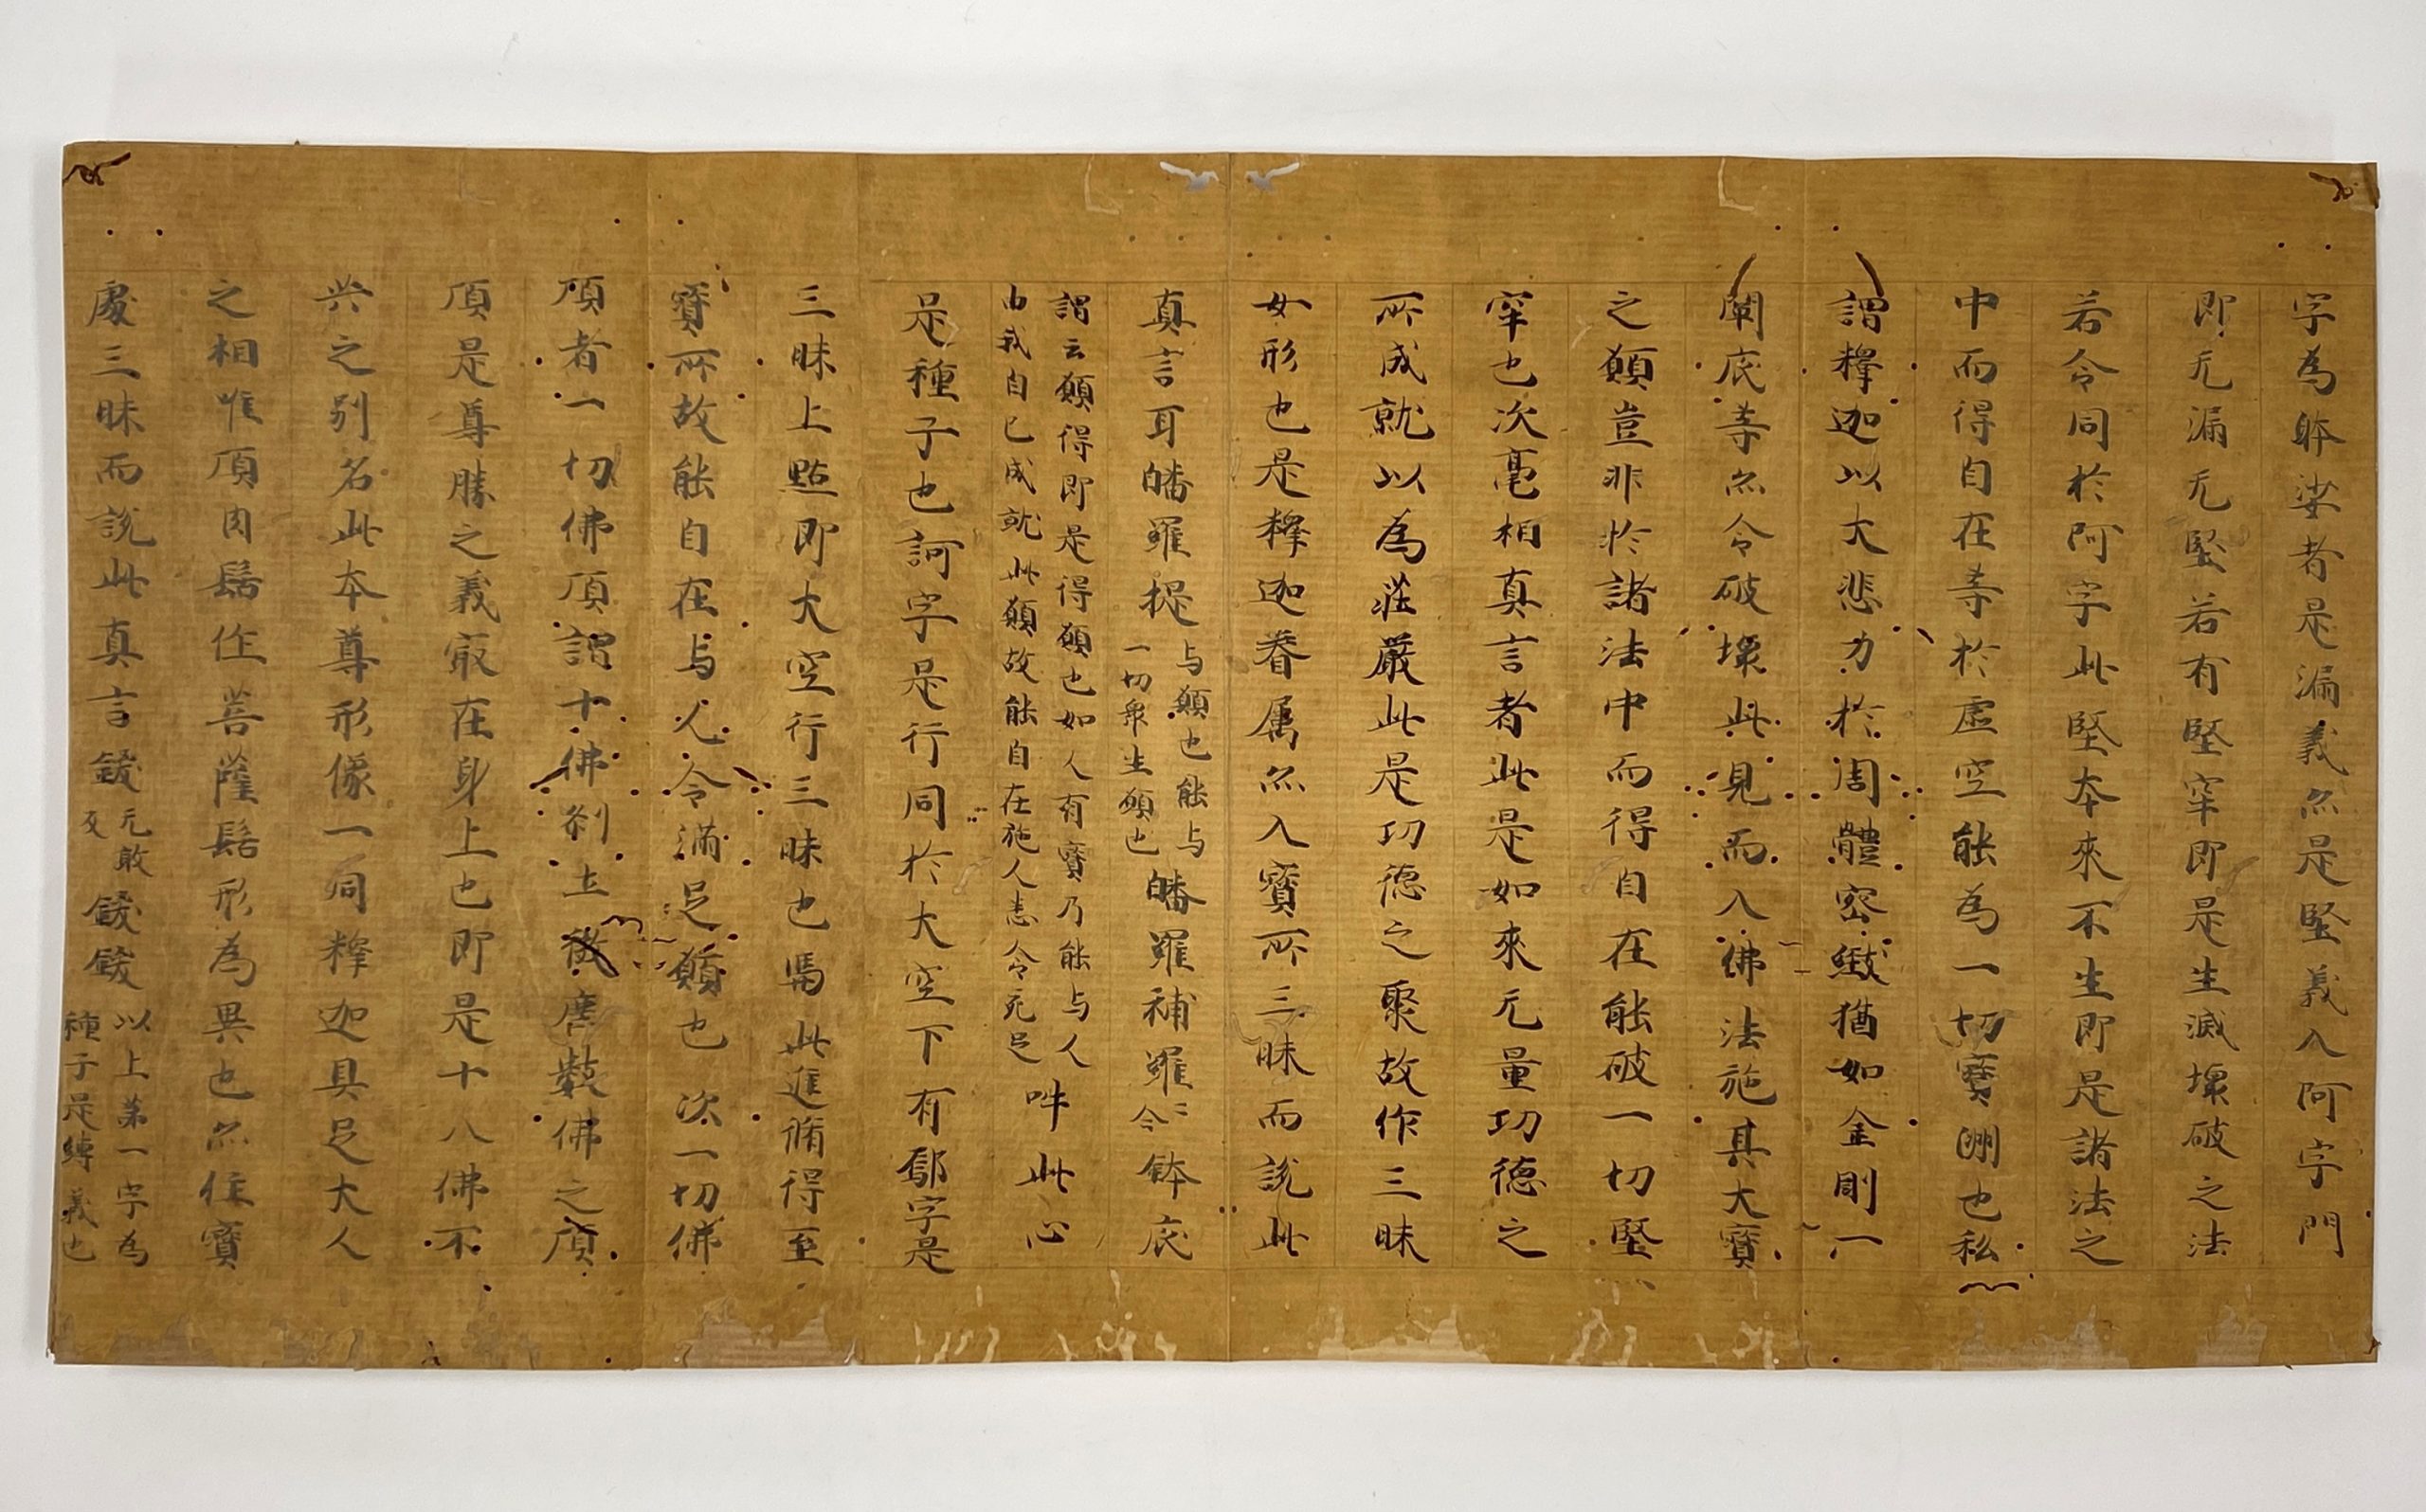 字為躰娑者是漏義亦是堅義入阿字門
即无漏无堅若有堅牢即是生滅壞破之法
若令同於阿字此堅本來不生即是諸法之
中而得自在等於虛空能為一切寶洲也私
謂釋迦以大悲力於周體密緻猶如金剛一
闡底等亦令破壞此見而入佛法施其大寶
之願豈非於諸法中而得自在能破一切堅
牢也次毫相真言者此是如來无量功德之
所成就以為莊嚴此是功德之聚故作三昧
女形也是釋迦眷属亦入寶所三昧而說此
真言耳皤羅提与願也能与一切衆生願也皤羅補羅〻令鉢底
謂云願得即是得願也如人有寶乃能与人由我自已成就此願故能自在施人悉令充足吽此心
是種子也訶字是行同於大空下有鄔字是
三昧上點即大空行三昧也馬此進脩得至
寶所故能自在与人令滿足願也次一切佛
頂者一切佛頂謂十佛刹土微塵數佛之頂
頂是尊勝之義㝡在身上也即是十八佛不
共之別名此本尊形像一同釋迦具足大人
之相唯頂肉髻作菩薩髻形為異也亦住寶
處三昧而說此真言鑁无敢反鑁鑁以上第一字為種子是縛義也